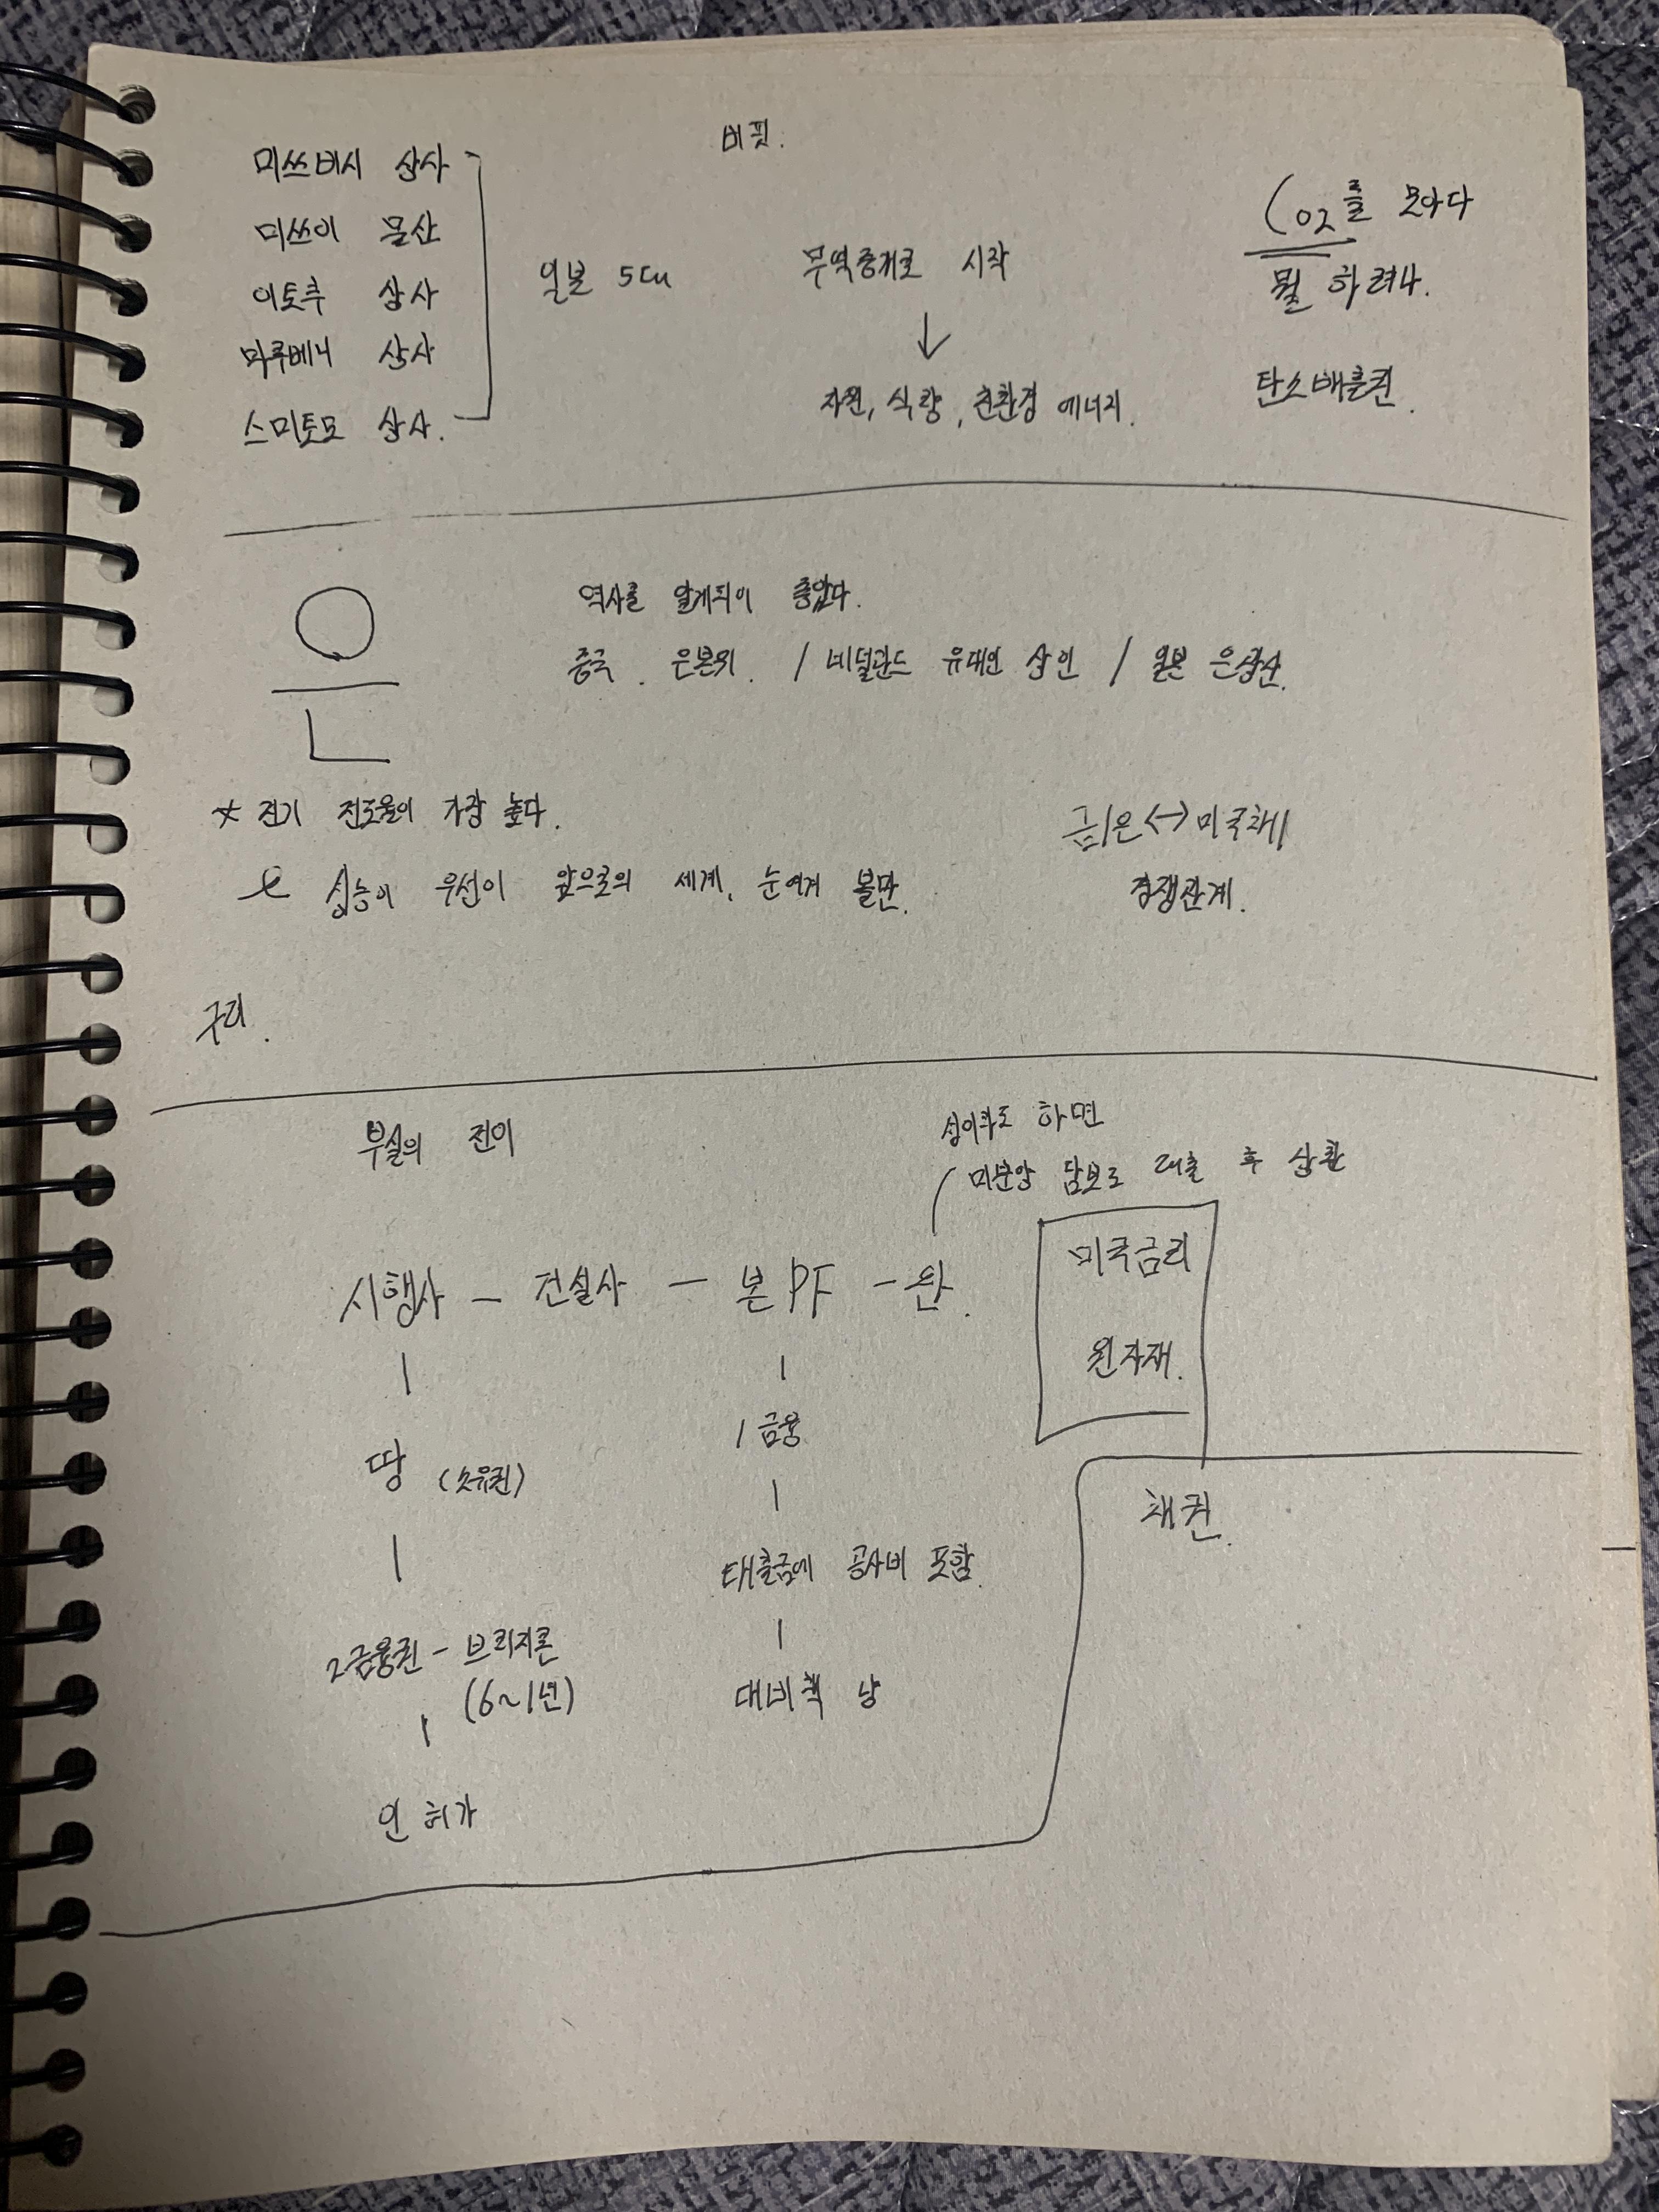 버핏.
미쓰비시 상사
미쓰이 물산
이토추 상사
마루베니 상사
스미토모 상사.
일본 5대
무역중개로 시작
↓
자원, 식량, 친환경 에너지.
CO2를 모아다
뭘 하려나.
탄소배출권.
은
역사를 알게되어 좋았다.
중국. 은본위. / 네덜란드 유대인 상인 / 일본 은광산.
* 전기 전도율이 가장 높다.
성능이 우선인 앞으로의 세계, 눈여겨 볼만.
금/은 <-> 미국채
경쟁관계.
구리.
부실의 전이
하면
미분양 담보로 대출 후 상환
시행사 - 건설사 - 본PF - 완.
미국금리
원자재.
땅 (소유권)
2금융권 - 브릿지론
(6~1년)
인허가
1금융
대출금에 공사비 포함.
대비책
채권.